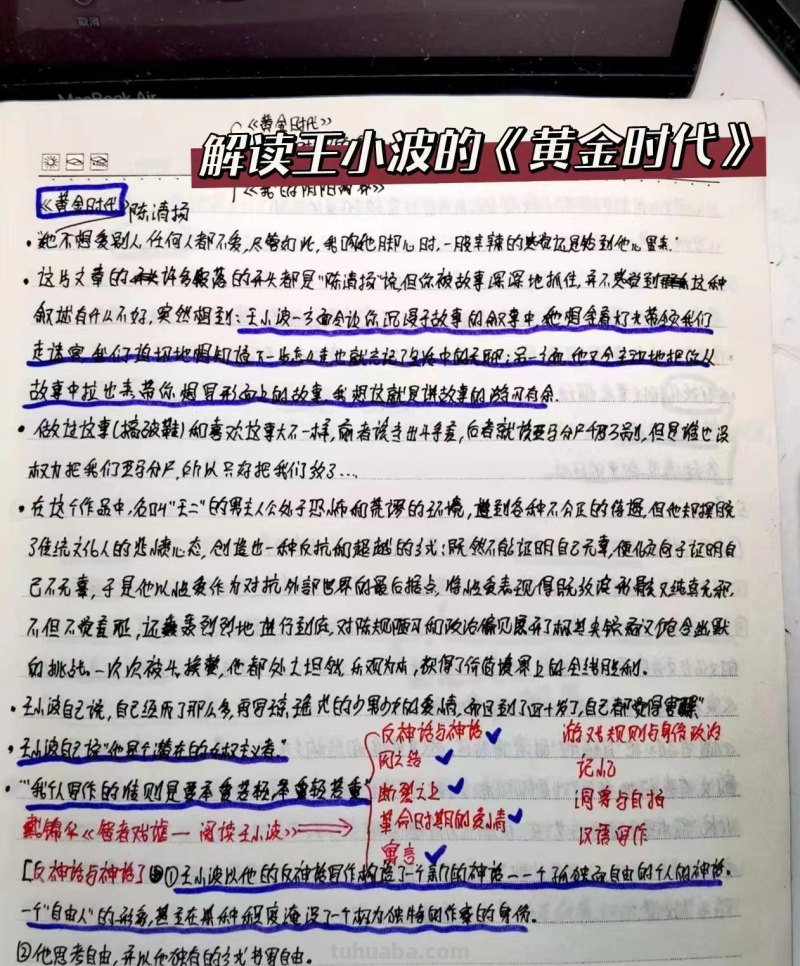 取消
MacBook Air
《黄金时代》
解读王小波的《黄金时代》
《我的阴阳两界》
《黄金时代》陈清扬
"她不想爱别人,任何人都不爱,尽管如此,我吻她脚心时,一股辛辣的感觉还是钻到她心里来."
这片文章的开头许多段落的开头都是"陈清扬"说,但你被故事深深地抓住,并不感觉到这种
叙述有什么不好,突然想到:王小波一方面会让你沉浸于故事的叙事中,他想拿着灯火带领我们
走迷宫,我们迫切地想知道下一步怎么走也就忘记了生活中的无聊;另一方面,他又会主动地把你从
故事中拉出来,带你想异形而上的故事,我想这就是讲故事的游刃有余.
做这故事(搞破鞋)和喜欢故事大不一样,前者该寺出斗争差,后者就该五马分尸千刀万剐,但是谁也没
权力把我们五马分尸,所以只好把我们放了…
在这个作品中,名叫"王二"的男主人公处于恐怖和荒谬的环境,遭到各种不公正的待遇,但他却摆脱
了传统文化人的悲愤心态,创造出一种反抗和超越的方式:既然不能证明自己无辜,便倾向于证明自
己不无辜,于是他以性爱作为对抗外部世界的最后据点,将性爱表现得既放浪形骸又纯真无邪,
不但不觉羞耻,还轰轰烈烈地进行到底,对陈规陋习和政治偏见展开了极其尖锐而又饱含幽默
的挑战.一次次被斗、挨整,他都处之坦然,乐观为本,获得了价值境界上的全线胜利.
王小波自己说,自己经历了那么多,再写琼瑶式的少男少女的爱情,而且到了四十岁了,自己都觉得
王小波自己说"他是个潜在的女权主义者."
"我个人写作的准则是要举重若轻,举重轻若重"
反神话与神话
因之络
断裂之上
革命时期的爱情
寓言
游戏规则与身体政治
记忆
洞穿与自指
汉语写作
戴锦华《智者戏谑—阅读王小波》
[反神话与神话]①王小波以他的反神话写作构造了一个新的神话——一个孤独而自由的个人的神话.
一个"自由人"的形象,甚至在某种程度淹没了一个极为独特的作家的身份.
②他思考自由,并以他独有的方式书写自由.
tuhuaba.com